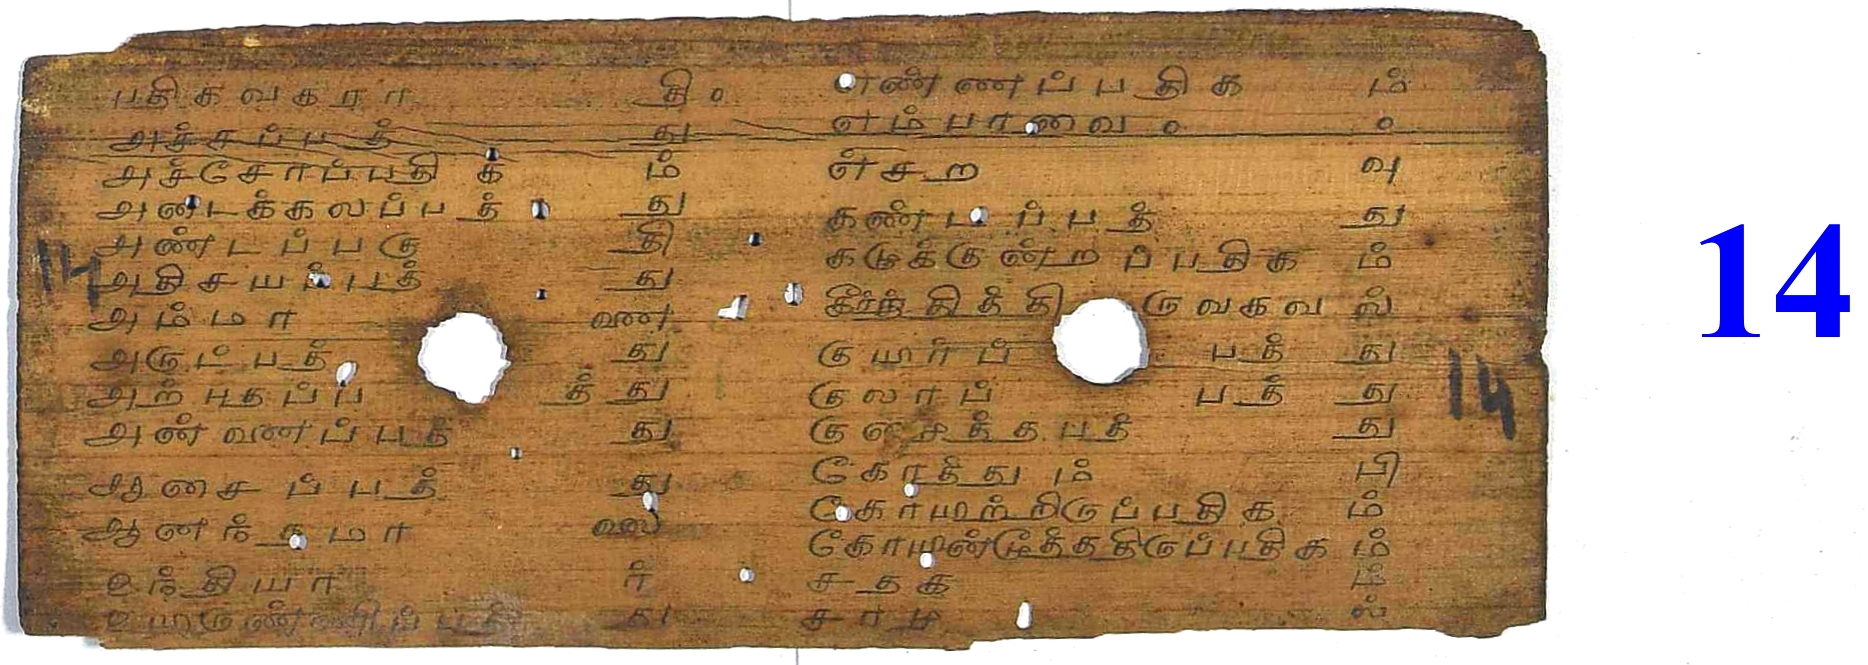 பதிகவகரா தி๐
அச்சப்பத் து
அச்சோப்பதிக் ம்
அடைக்கலப்பத் து
அண்டப்பகு தி
அதிசயப்பத் து
அம்மா னை
அருட்பத் து
அற்புதப்ப த்து
அன்னைப்பத் து
ஆசைப்பத் து
ஆனந்தமா லை
உந்தியா ர்
உயிருண்ணிப்பத் து
எண்ணப்பதிக ம்
எம்பாவை๐ ๐
ஏசற வு
கண்டப்பத் து
கழுக்குன்றப்பதிக ம்
கீர்த்தித்தி ருவகவ ல்
குயிற்ப் பத் து
குலாப் பத் து
குழைத்தபத் து
கோத்தும் பி
கோயிற்றிருப்பதிக ம்
கோயின்மூத்ததிருப்பதிக ம்
சதக ம்
சாழ ல்
14
14
14